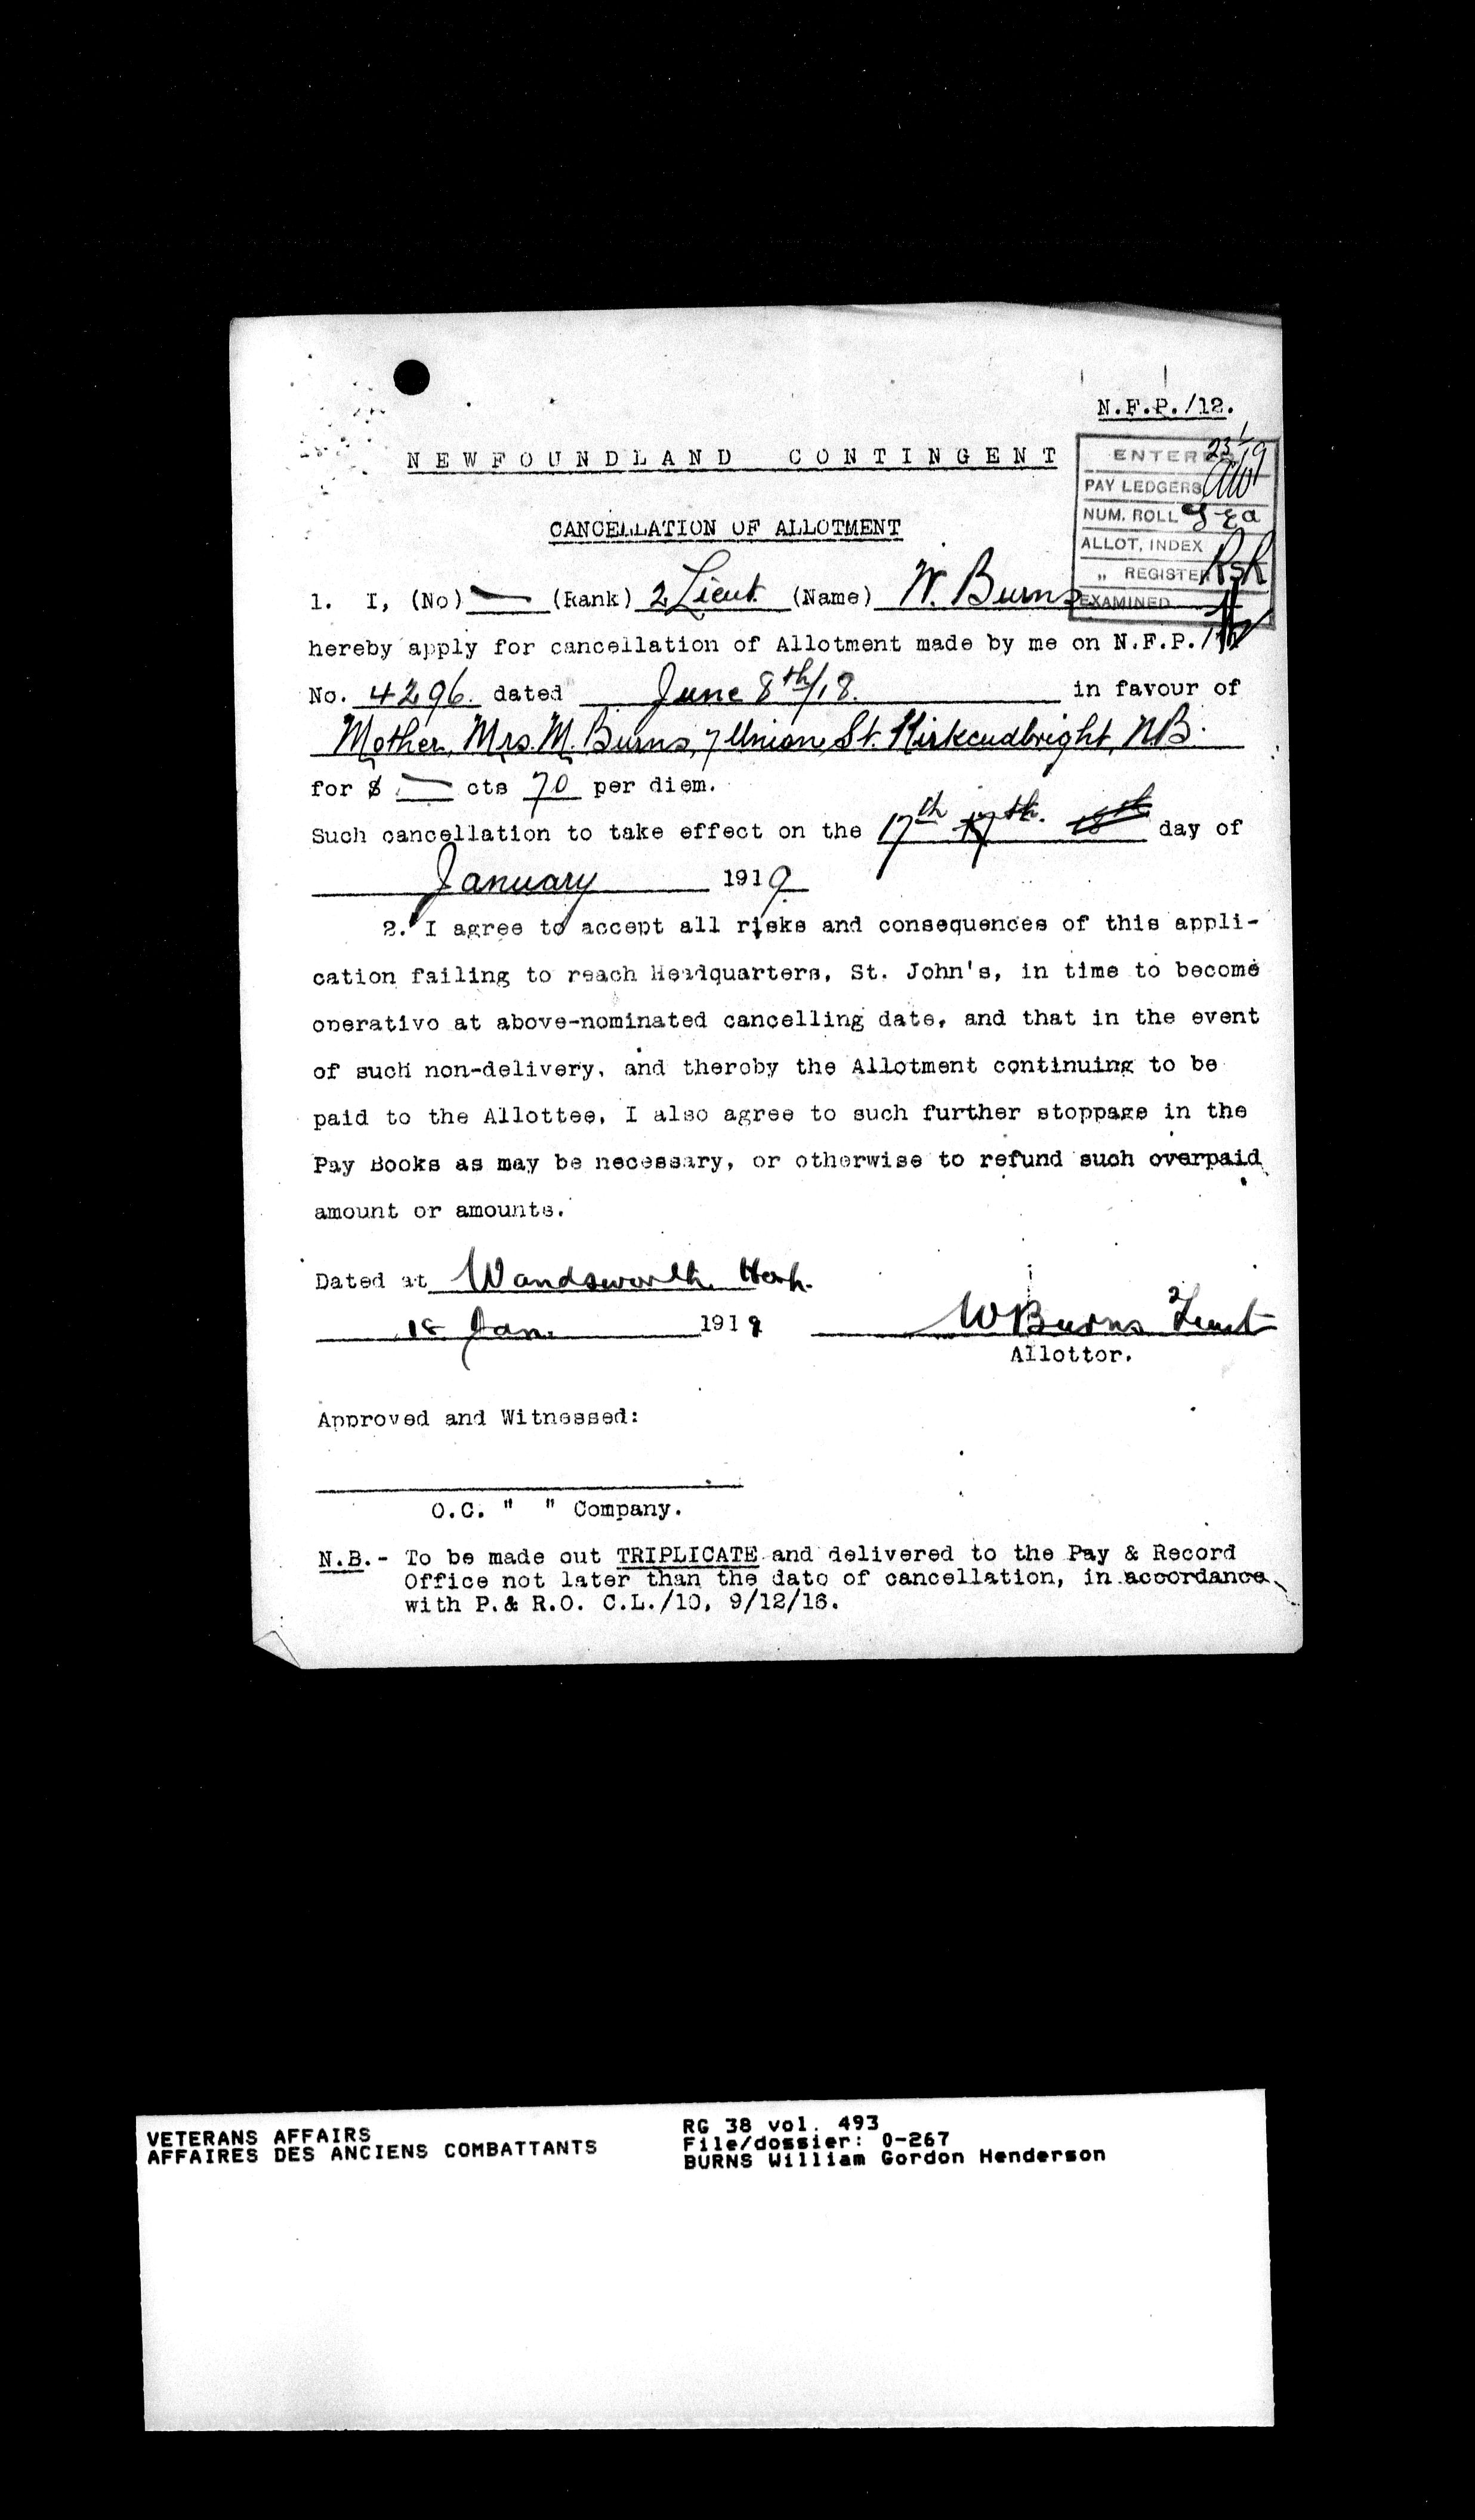 N.F.P./12.
NEWFOUNDLAND CONTINGENT
ENTERED 23/1/19
PAY LEDGERS
NUM. ROLL
ALLOT, INDEX
„ REGISTER
EXAMINED
CANCELLATION OF ALLOTMENT
1. I, (No) — (Rank) 2 Lieut. (Name) W. Burns
hereby apply for cancellation of Allotment made by me on N.F.P./
No. 4296. dated June 8th/18. in favour of
Mother, Mrs. M. Burns, 7 Union St. Kirkcudbright, NB.
for $ — cts 70 per diem.
Such cancellation to take effect on the 17th 17th. 18th day of
January 1919
2. I agree to accept all risks and consequences of this appli-
cation failing to reach Headquarters, St. John's, in time to become
operativo at above-nominated cancelling date, and that in the event
of such non-delivery, and thereby the Allotment continuing to be
paid to the Allottee, I also agree to such further stoppage in the
Pay Books as may be necessary, or otherwise to refund such overpaid
amount or amounts.
Dated at Wandsworth
18 Jan. 1919 W Burns 2 Lieut
Allottor.
Approved and Witnessed:
O.C. " " Company.
N.B.- To be made out TRIPLICATE and delivered to the Pay & Record
Office not later than the date of cancellation, in accordance
with P.& R.O. C.L./10, 9/12/16.
VETERANS AFFAIRS
AFFAIRES DES ANCIENS COMBATTANTS
RG 38 vol. 493
File/dossier: 0-267
BURNS William Gordon Henderson